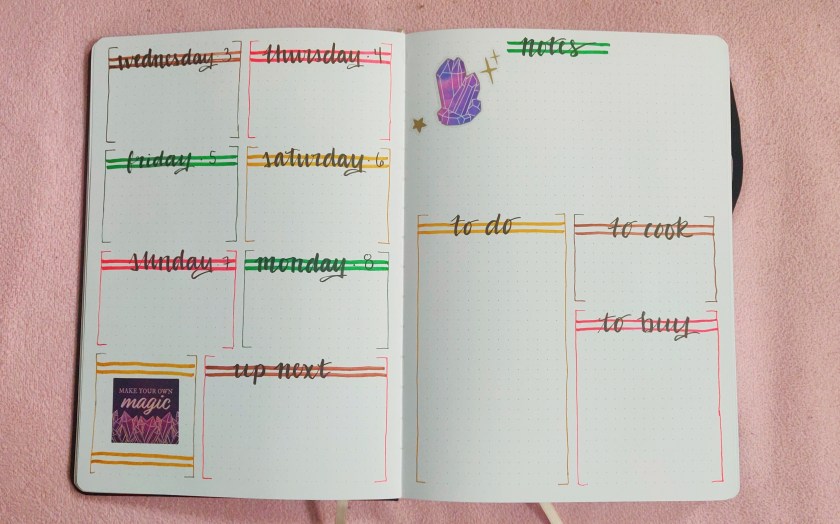 wednesday 3
thursday • 4
friday 5
saturday • 6
sunday • 7
monday • 8
MAKE YOUR OWN
magic
up next
notes
to do
to cook
to buy